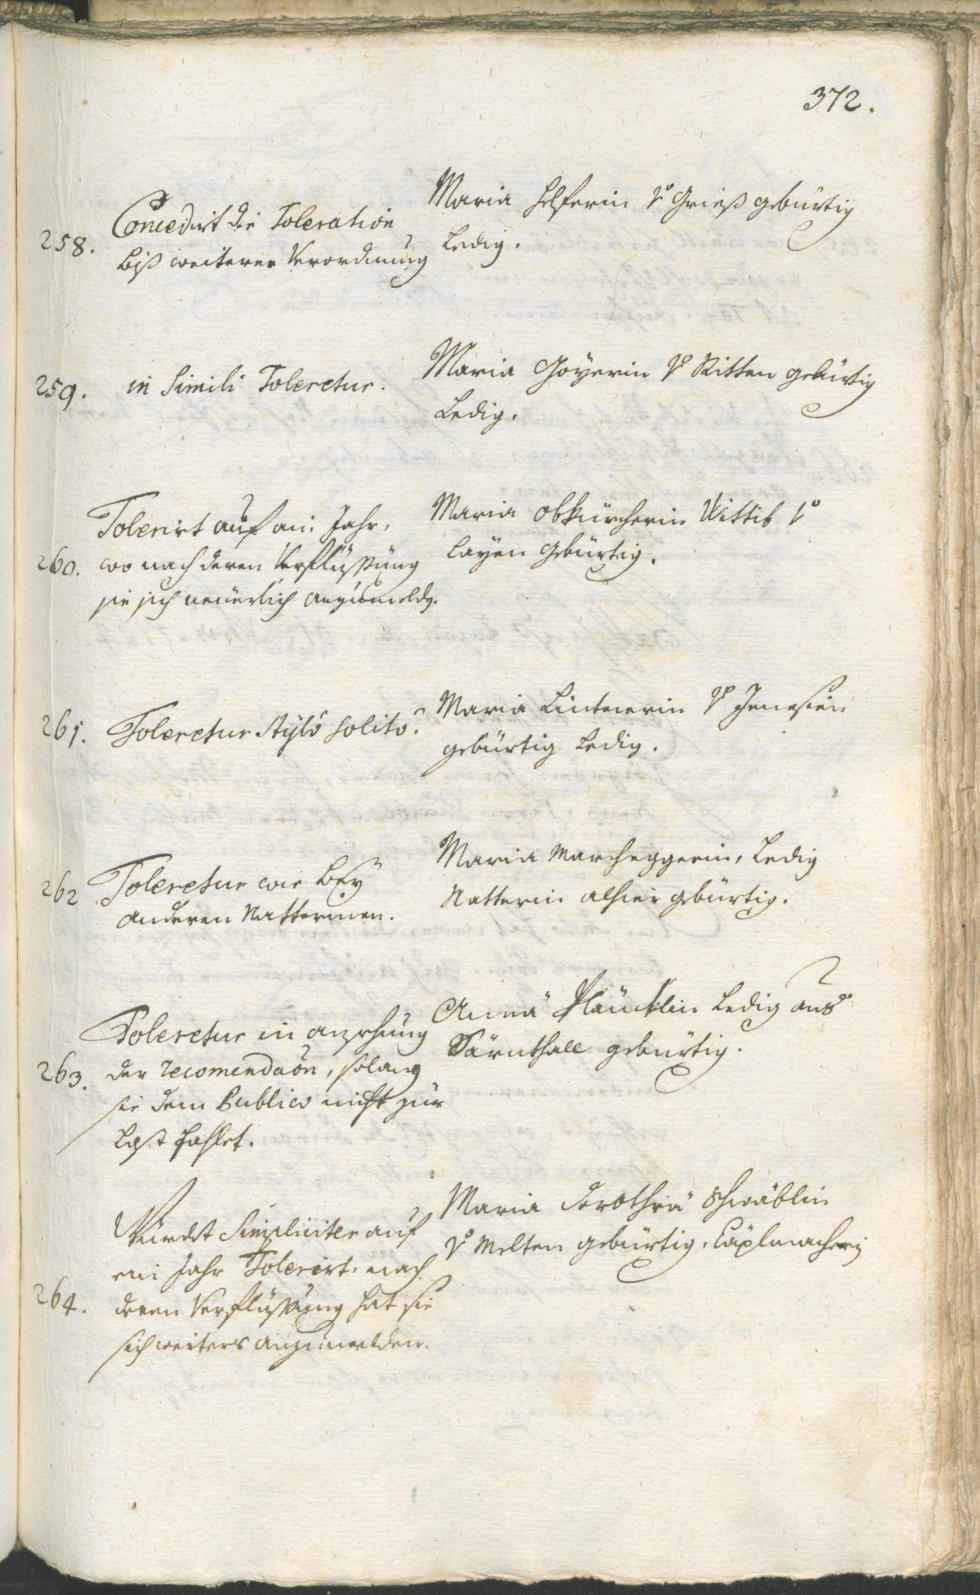 372.
258. Concedirt die Toleration
biß weiterer Verordnung
Maria Helferin v Grieß gebürtig
Ledig.
259. in Simili Toleretur.
Maria Goÿerin v Ritten gebürtig
Ledig.
Tolerirt auf ain Jahr,
260. wo nach deren Verflüssung
sie sich neüerlich anzumelden.
Maria Obkircherin Wittib v
Layen gebürtig.
261. Toleretur stylo solito.
Maria Lintnerin v Jenesien
gebürtig Ledig.
262 Toleretur wie beÿ
anderen Natterinen.
Maria Marcheggerin, Ledig
Natterin alhier gebürtig.
Toleretur in ansehung
263. der recomendaon, solang
sie dem Publico nicht zur
Last fahlet.
Anna Ledig aus
Särnthall gebürtig.
Würdet Simpliciter auf
ein Jahr Tolerirt, nach
264. deren Verflüssung hat sie
sich weiters anzumelden.
Maria Dorothea Schwäblin
v Melten gebürtig,